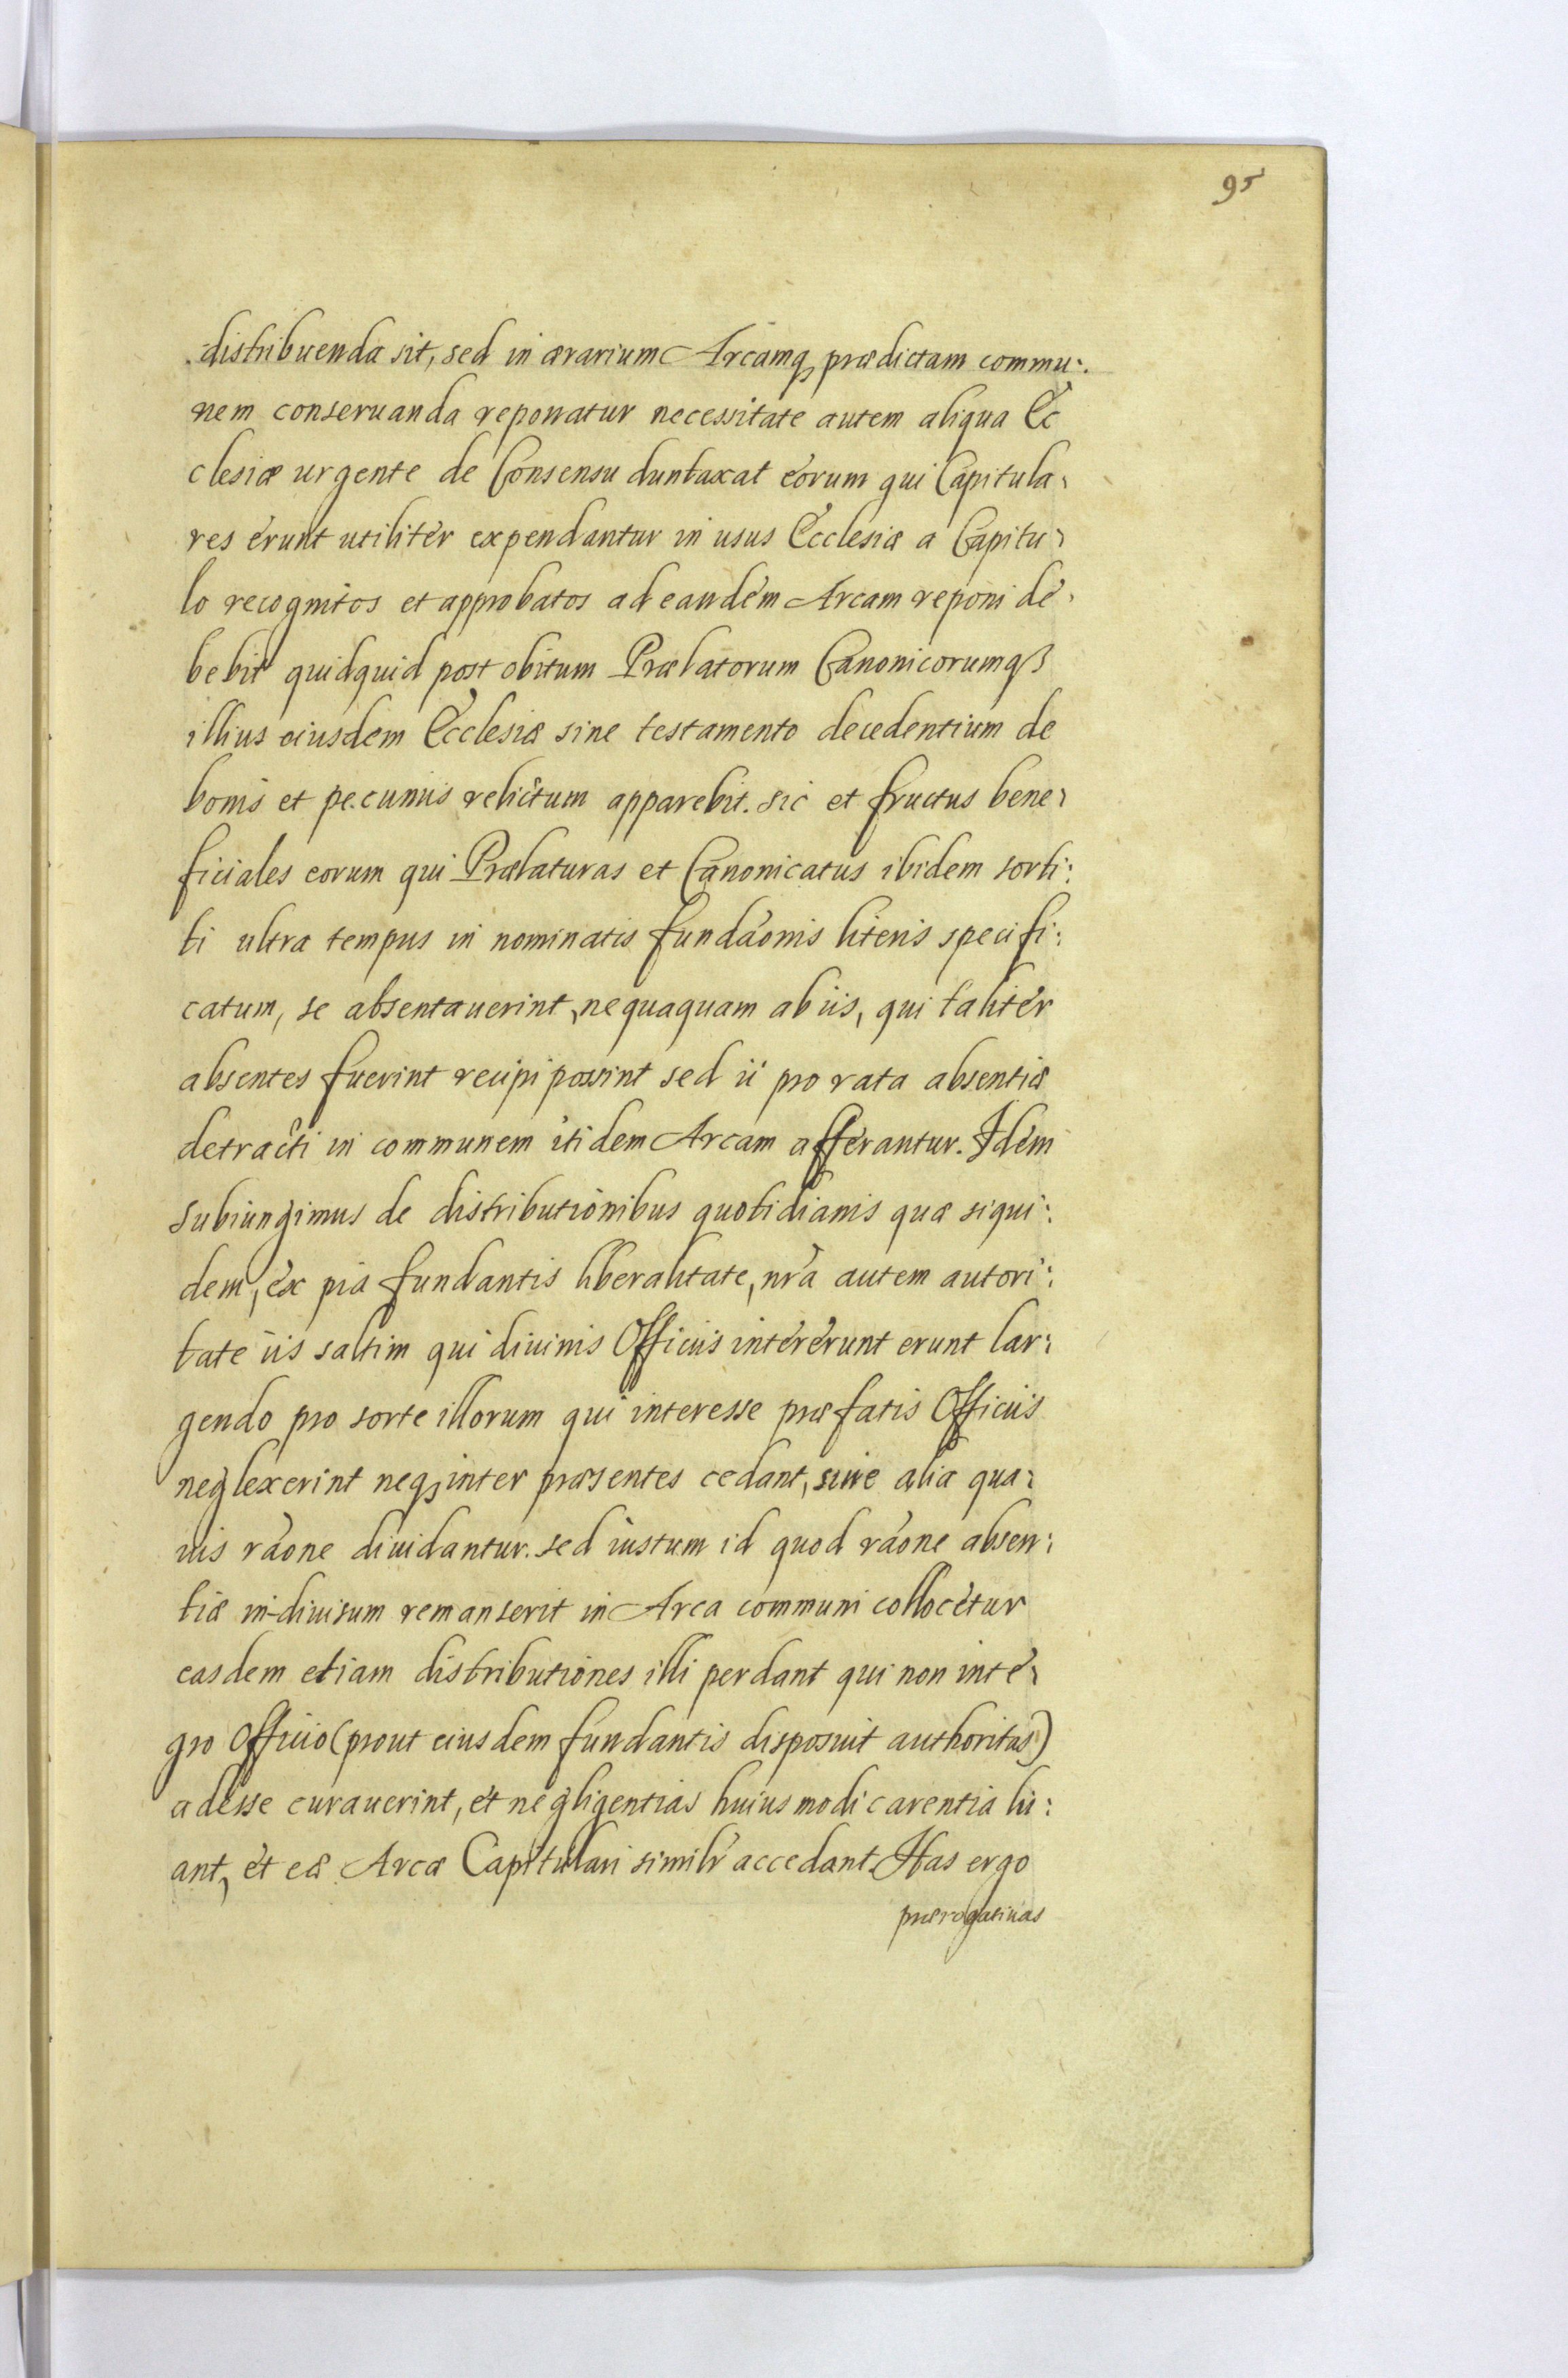 95
distribuenda sit, sed in ærarium Arcamq₃ prædictam commu:
nem conseruanda reponatur necessitate autem aliqua Ec
clesiæ urgente de Consensu duntaxat eorum qui Capitula,
res erunt utiliter expendantur in usus Ecclesiæ a Capitu,
lo recognitos et approbatos ad eandem Arcam reponi de,
bebit quidquid post obitum Prælatorum Canonicorumqʒ
illius eiusdem Ecclesiæ sine testamento decedentium de
bonis et pecuniis relictum apparebit. sic et fructus bene,
ficiales eorum qui Prælaturas et Canonicatus ibidem sorti:
ti ultra tempus in nominatis fundãonis literis specifi:
catum, se absentauerint, nequaquam ab iis, qui taliter
absentes fuerint recipi possint sed ii pro rata absentiæ
detracti in communem itidem Arcam afferantur. Idem
subiungimus de distributionibus quotidianis quæ siqui:
dem, ex pia fundantis liberalitate, nr̃a autem autori:
tate iis saltim qui diuinis Officiis intererunt erunt lar:
gendo pro sorte illorum qui interesse præfatis Officiis
neglexerint neqʒ inter præsentes cedant, siue alia qua:
uis rãone diuidantur. sed iustum id quod rãone absen:
tiæ in-diuisum remanserit in Arca communi collocetur
easdem etiam distributiones illi perdant qui non inte,
gro Officio (prout eiusdem fundantis disposuit authoritas)
adesse curauerint, et negligentias huiusmodi carentia lu:
ant, et eæ Arcæ Capitulari similr̃ accedant. Has ergo
prærogatiuas